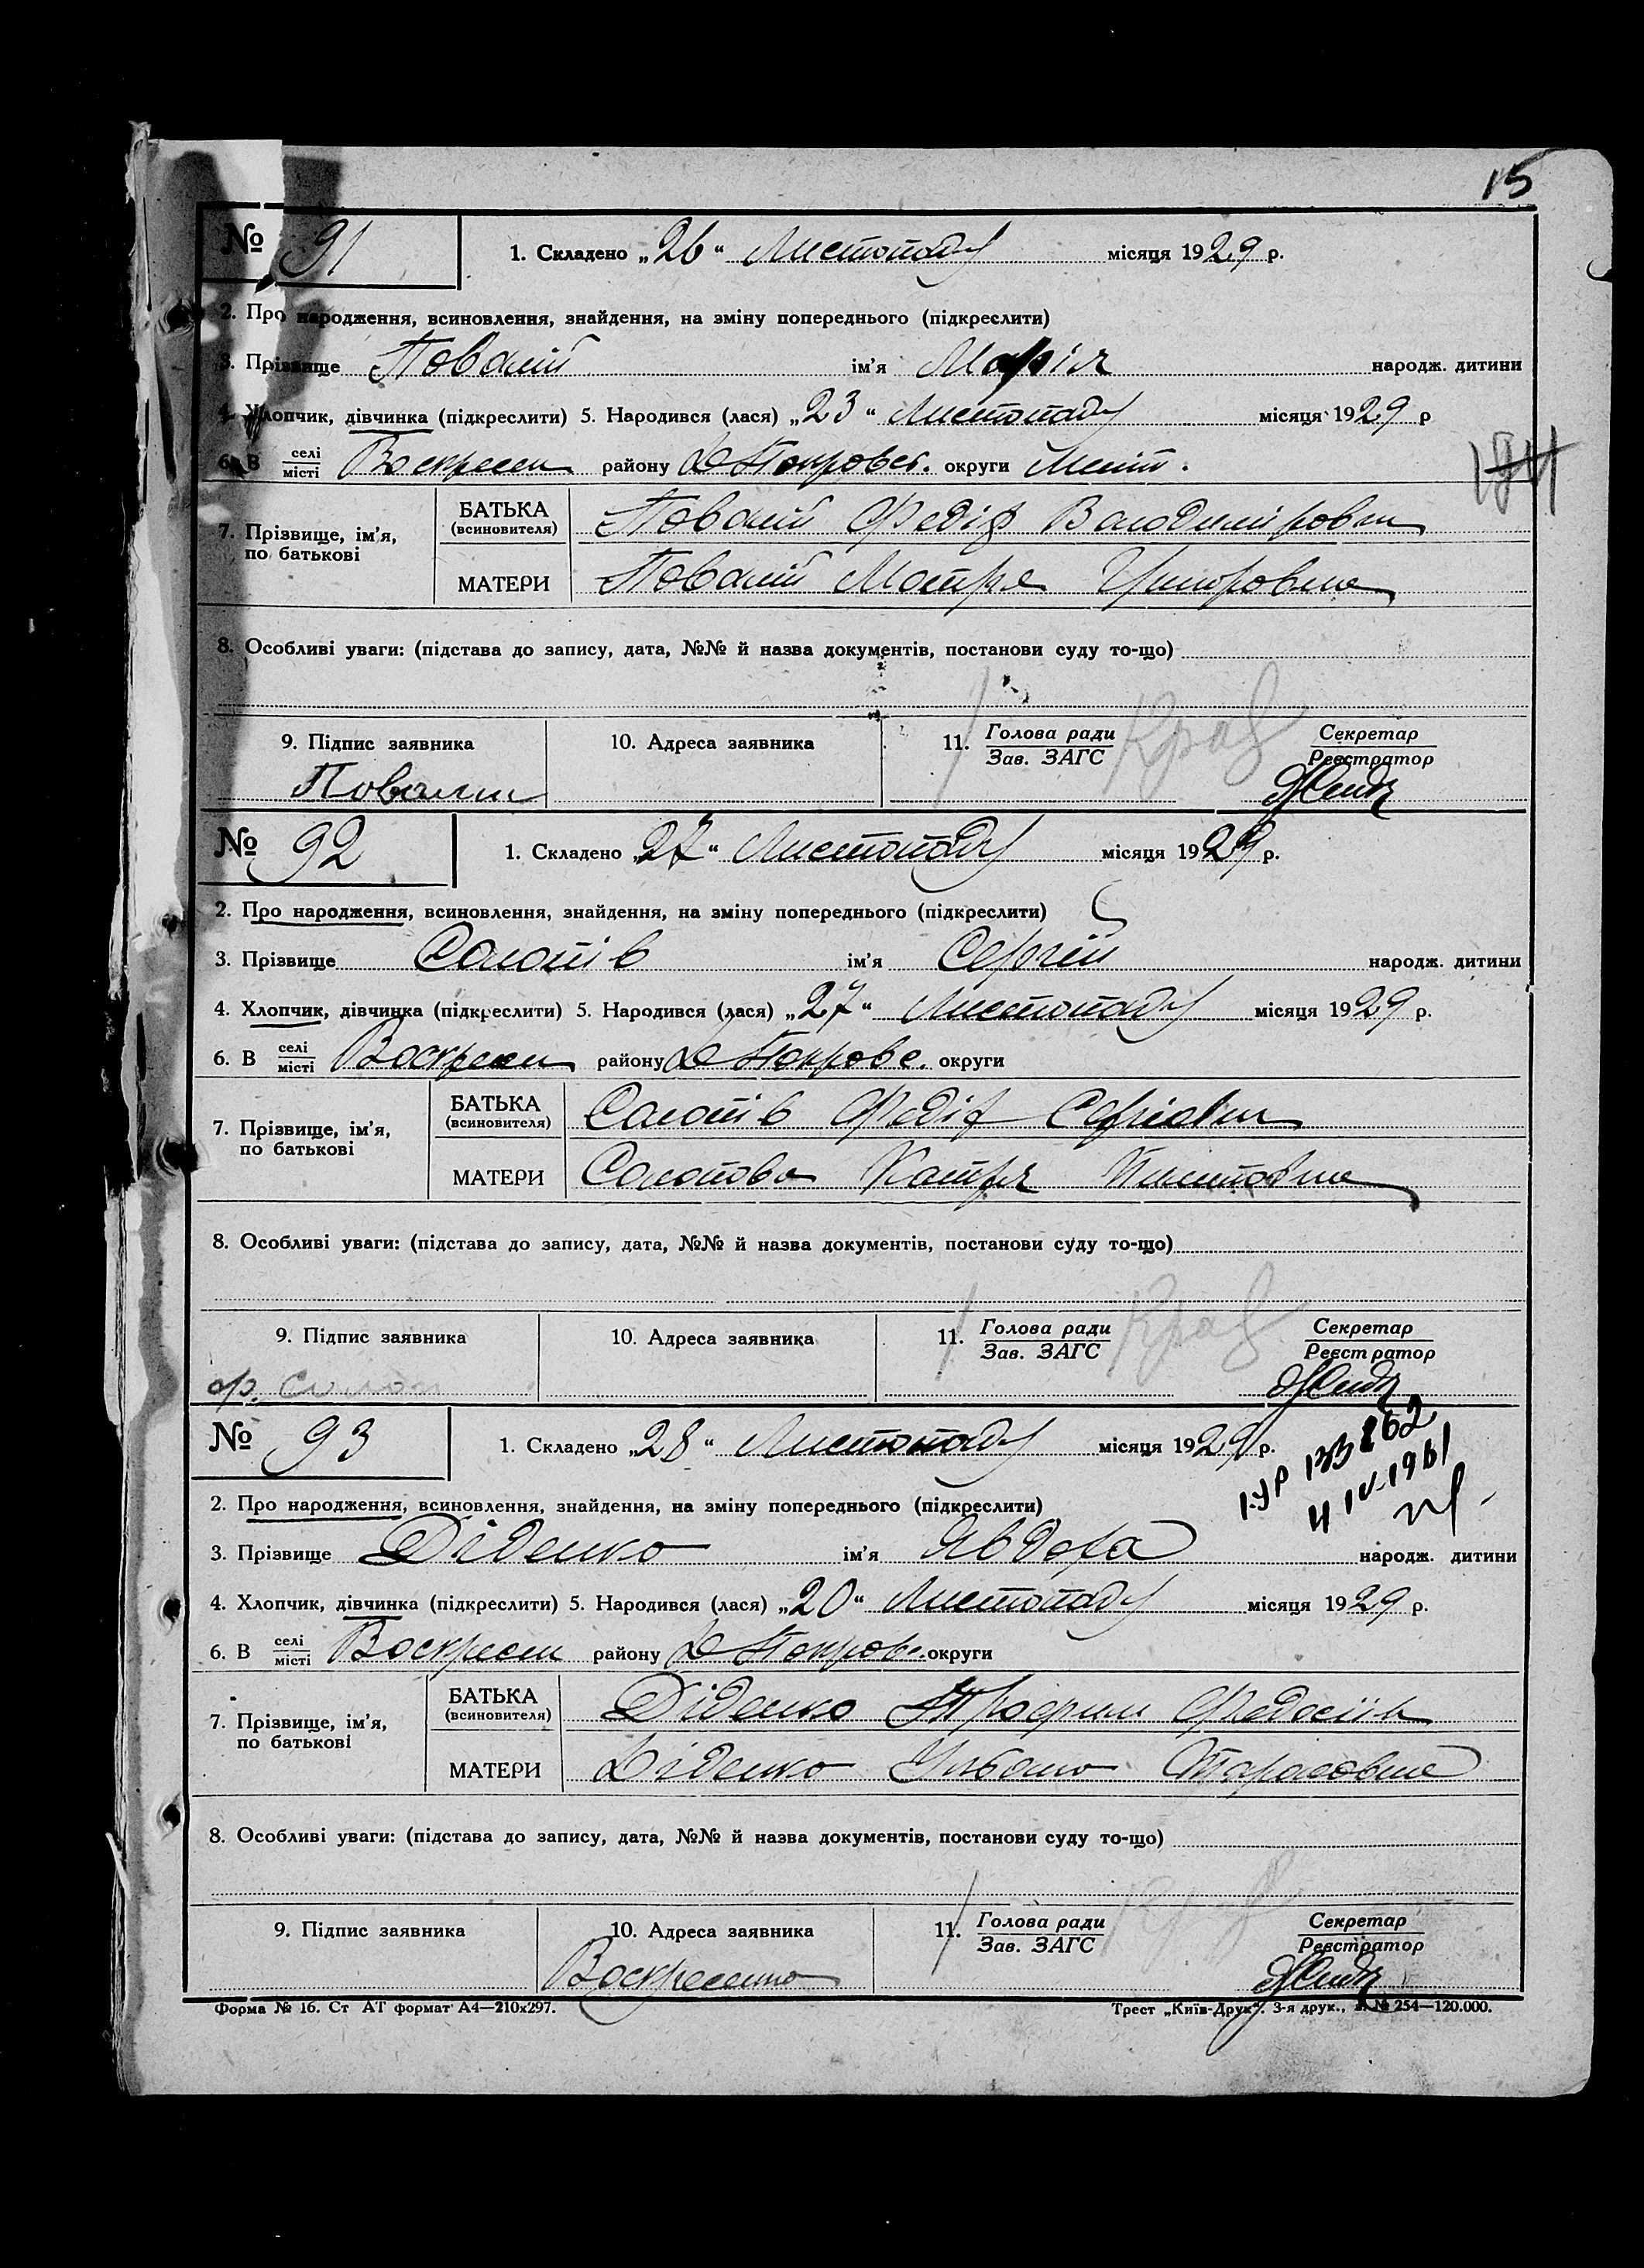 15
№ 91 1. Складено „26“ Листопаду місяця 1929 р.
2. Про народження, всиновлення, знайдення, на зміну попереднього (підкреслити)
3. Прізвище Повалій ім'я Марія народж. дитини
4. Хлопчик, дівчинка (підкреслити) 5. Народився (лася) „23“ Листопаду місяця 1929 р
6. В селі місті Воскресен району Покровс. округи
7. Прізвище, ім'я, по батькові
БАТЬКА (всиновителя) Повалій Федір Володимірович
МАТЕРИ Повалій Мотря
8. Особливі уваги: (підстава до запису, дата, №№ й назва документів, постанови суду то-що)
9. Підпис заявника 10. Адреса заявника 11. Голова ради Зав. ЗАГС Секретар Реєстратор
Повалій Крав
№ 92 1. Складено „27“ Листопаду місяця 1929 р.
2. Про народження, всиновлення, знайдення, на зміну попереднього (підкреслити)
3. Прізвище Солопів ім'я Сергій народж. дитини
4. Хлопчик, дівчинка (підкреслити) 5. Народився (лася) „27“ Листопаду місяця 1929 р.
6. В селі місті Воскресен району Покровс. округи
7. Прізвище, ім'я, по батькові
БАТЬКА (всиновителя) Солопів Федір Сергієвич
МАТЕРИ Солопова Катря
8. Особливі уваги: (підстава до запису, дата, №№ й назва документів, постанови суду то-що)
9. Підпис заявника 10. Адреса заявника 11. Голова ради Зав. ЗАГС Секретар Реєстратор
ф. Солоп Крав
№ 93 1. Складено „28“ Листопаду місяця 1929 р.
2. Про народження, всиновлення, знайдення, на зміну попереднього (підкреслити)
3. Прізвище Діденко ім'я Явдоха народж. дитини
4. Хлопчик, дівчинка (підкреслити) 5. Народився (лася) „20“ Листопаду місяця 1929 р.
6. В селі місті Воскресен району Покровс. округи
7. Прізвище, ім'я, по батькові
БАТЬКА (всиновителя) Діденко Трофим
МАТЕРИ Діденко Уляна Тарасовна
8. Особливі уваги: (підстава до запису, дата, №№ й назва документів, постанови суду то-що)
9. Підпис заявника 10. Адреса заявника 11. Голова ради Зав. ЗАГС Секретар Реєстратор
Воскресенка
Форма № 16. Ст АТ формат А4—210х297. Трест „Київ-Друк“. 3-я друк., з. № 254—120.000.